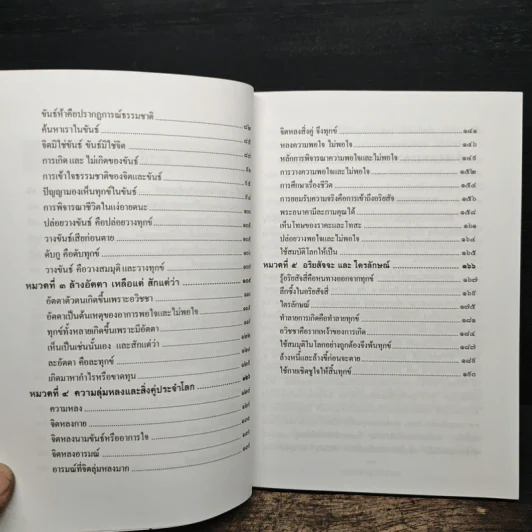 ขันธ์ห้าคือปรากฏการณ์ธรรมชาติ
ค้นหาเราในขันธ์
จิตมิใช่ขันธ์ ขันธ์มิใช่จิต
การเกิด และ ไม่เกิดของขันธ์
การเข้าใจธรรมชาติของจิตและขันธ์
ปัญญามองเห็นทุกข์ในขันธ์
การพิจารณาชีวิตในแง่อายตนะ
ปล่อยวางขันธ์ คือปล่อยวางทุกข์
วางขันธ์เสียก่อนตาย
ดับภู คือดับทุกข์
วางขันธ์ คือวางสมมุติ และวางทุกข์
หมวดที่ ๓ ล้างอัตตา เหลือแต่ สักแต่ว่า
อัตตาตัวตนเกิดขึ้นเพราะอวิชชา
อัตตาเป็นต้นเหตุของอาการพอใจและไม่พอใจ
ทุกข์ทั้งหลายเกิดขึ้นเพราะมีอัตตา
เห็นเป็นเช่นนั้นเอง และสักแต่ว่า
ละอัตตา คือละทุกข์
เกิดมาหากำไรหรือขาดทุน
หมวดที่ ๔ ความลุ่มหลงและสิ่งคู่ประจำโลก
ความหลง
จิตหลงกาย
จิตหลงนามขันธ์หรืออาการใจ
จิตหลงอารมณ์
อารมณ์ที่จิตลุ่มหลงมาก
จิตหลงสิ่งคู่ จึงทุกข์ ๑๔๑
หลงความพอใจ ไม่พอใจ ๑๔๖
หลักการพิจารณาความพอใจและไม่พอใจ ๑๔๙
การวางความพอใจและไม่พอใจ ๑๕๒
การศึกษาเรื่องชีวิต ๑๕๔
การยอมรับความจริงคือการเข้าถึงอริยสัจ ๑๕๖
พระอนาคามีละกามคุณได้ ๑๕๘
เห็นโทษของราคะและโทสะ ๑๖๑
ปล่อยวางพอใจและไม่พอใจ ๑๖๔
ใช้สมบัติให้โลกให้เป็น ๑๖๕
หมวดที่ ๕ อริยสัจจะ และ ไตรลักษณ์ ๑๖๖
รู้อริยสัจสี่คือหนทางออกจากทุกข์ ๑๖๗
ลึกซึ้งในอริยสัจสี่ ๑๖๙
ไตรลักษณ์ ๑๗๕
ทำลายการเกิดคือทำลายทุกข์ ๑๘๑
อวิชชาคือรากเหง้าของการเกิด ๑๘๔
ใช้สมมุติในโลกอย่างถูกต้องจึงพ้นทุกข์ ๑๘๗
ล้างหนี้และล้างขี้ก่อนจะตาย ๑๘๙
ใช้กายเชิดชูใจให้สิ้นทุกข์ ๑๙๐